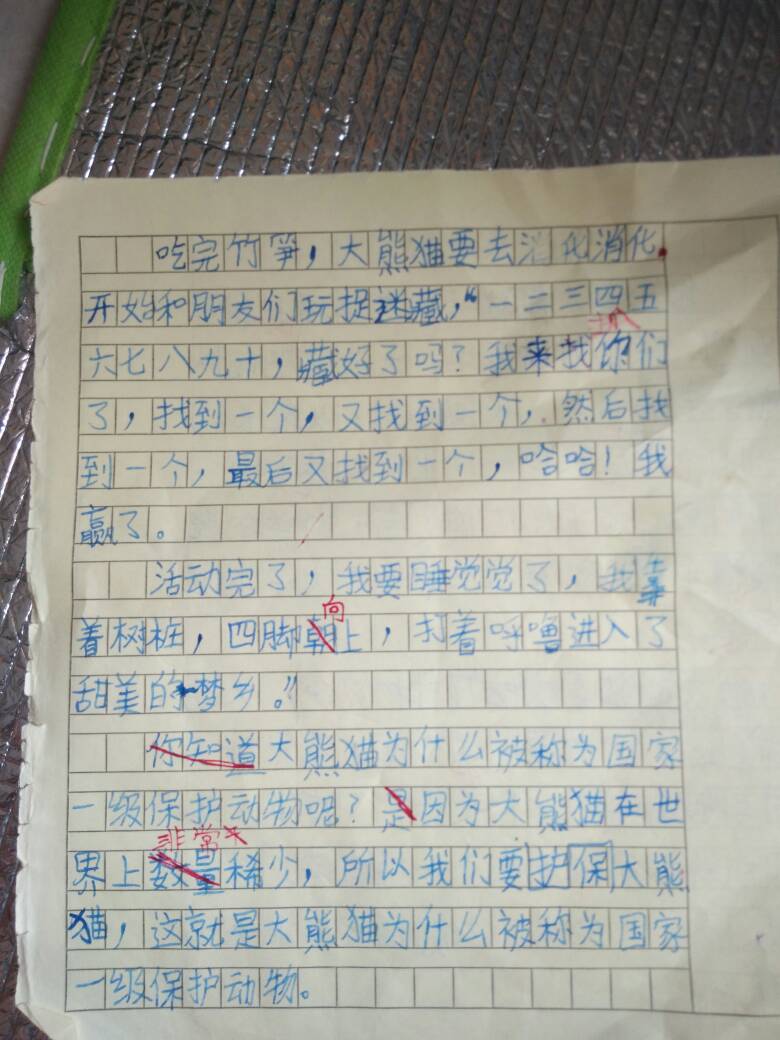 吃完竹笋，大熊猫要去消化消化。
开始和朋友们玩捉迷藏，“一二三四五
六七八九十，藏好了吗？我来找你们
了，找到一个，又找到一个，然后找
到一个，最后又找到一个，哈哈！我
赢了。
活动完了，我要睡觉觉了，我靠
向
着树桩，四脚朝上，打着呼噜进入了
甜美的梦乡。”
你知道大熊猫为什么被称为国家
一级保护动物呢？是因为大熊猫在世
非常
界上数量稀少，所以我们要护保大熊
猫，这就是大熊猫为什么被称为国家
一级保护动物。